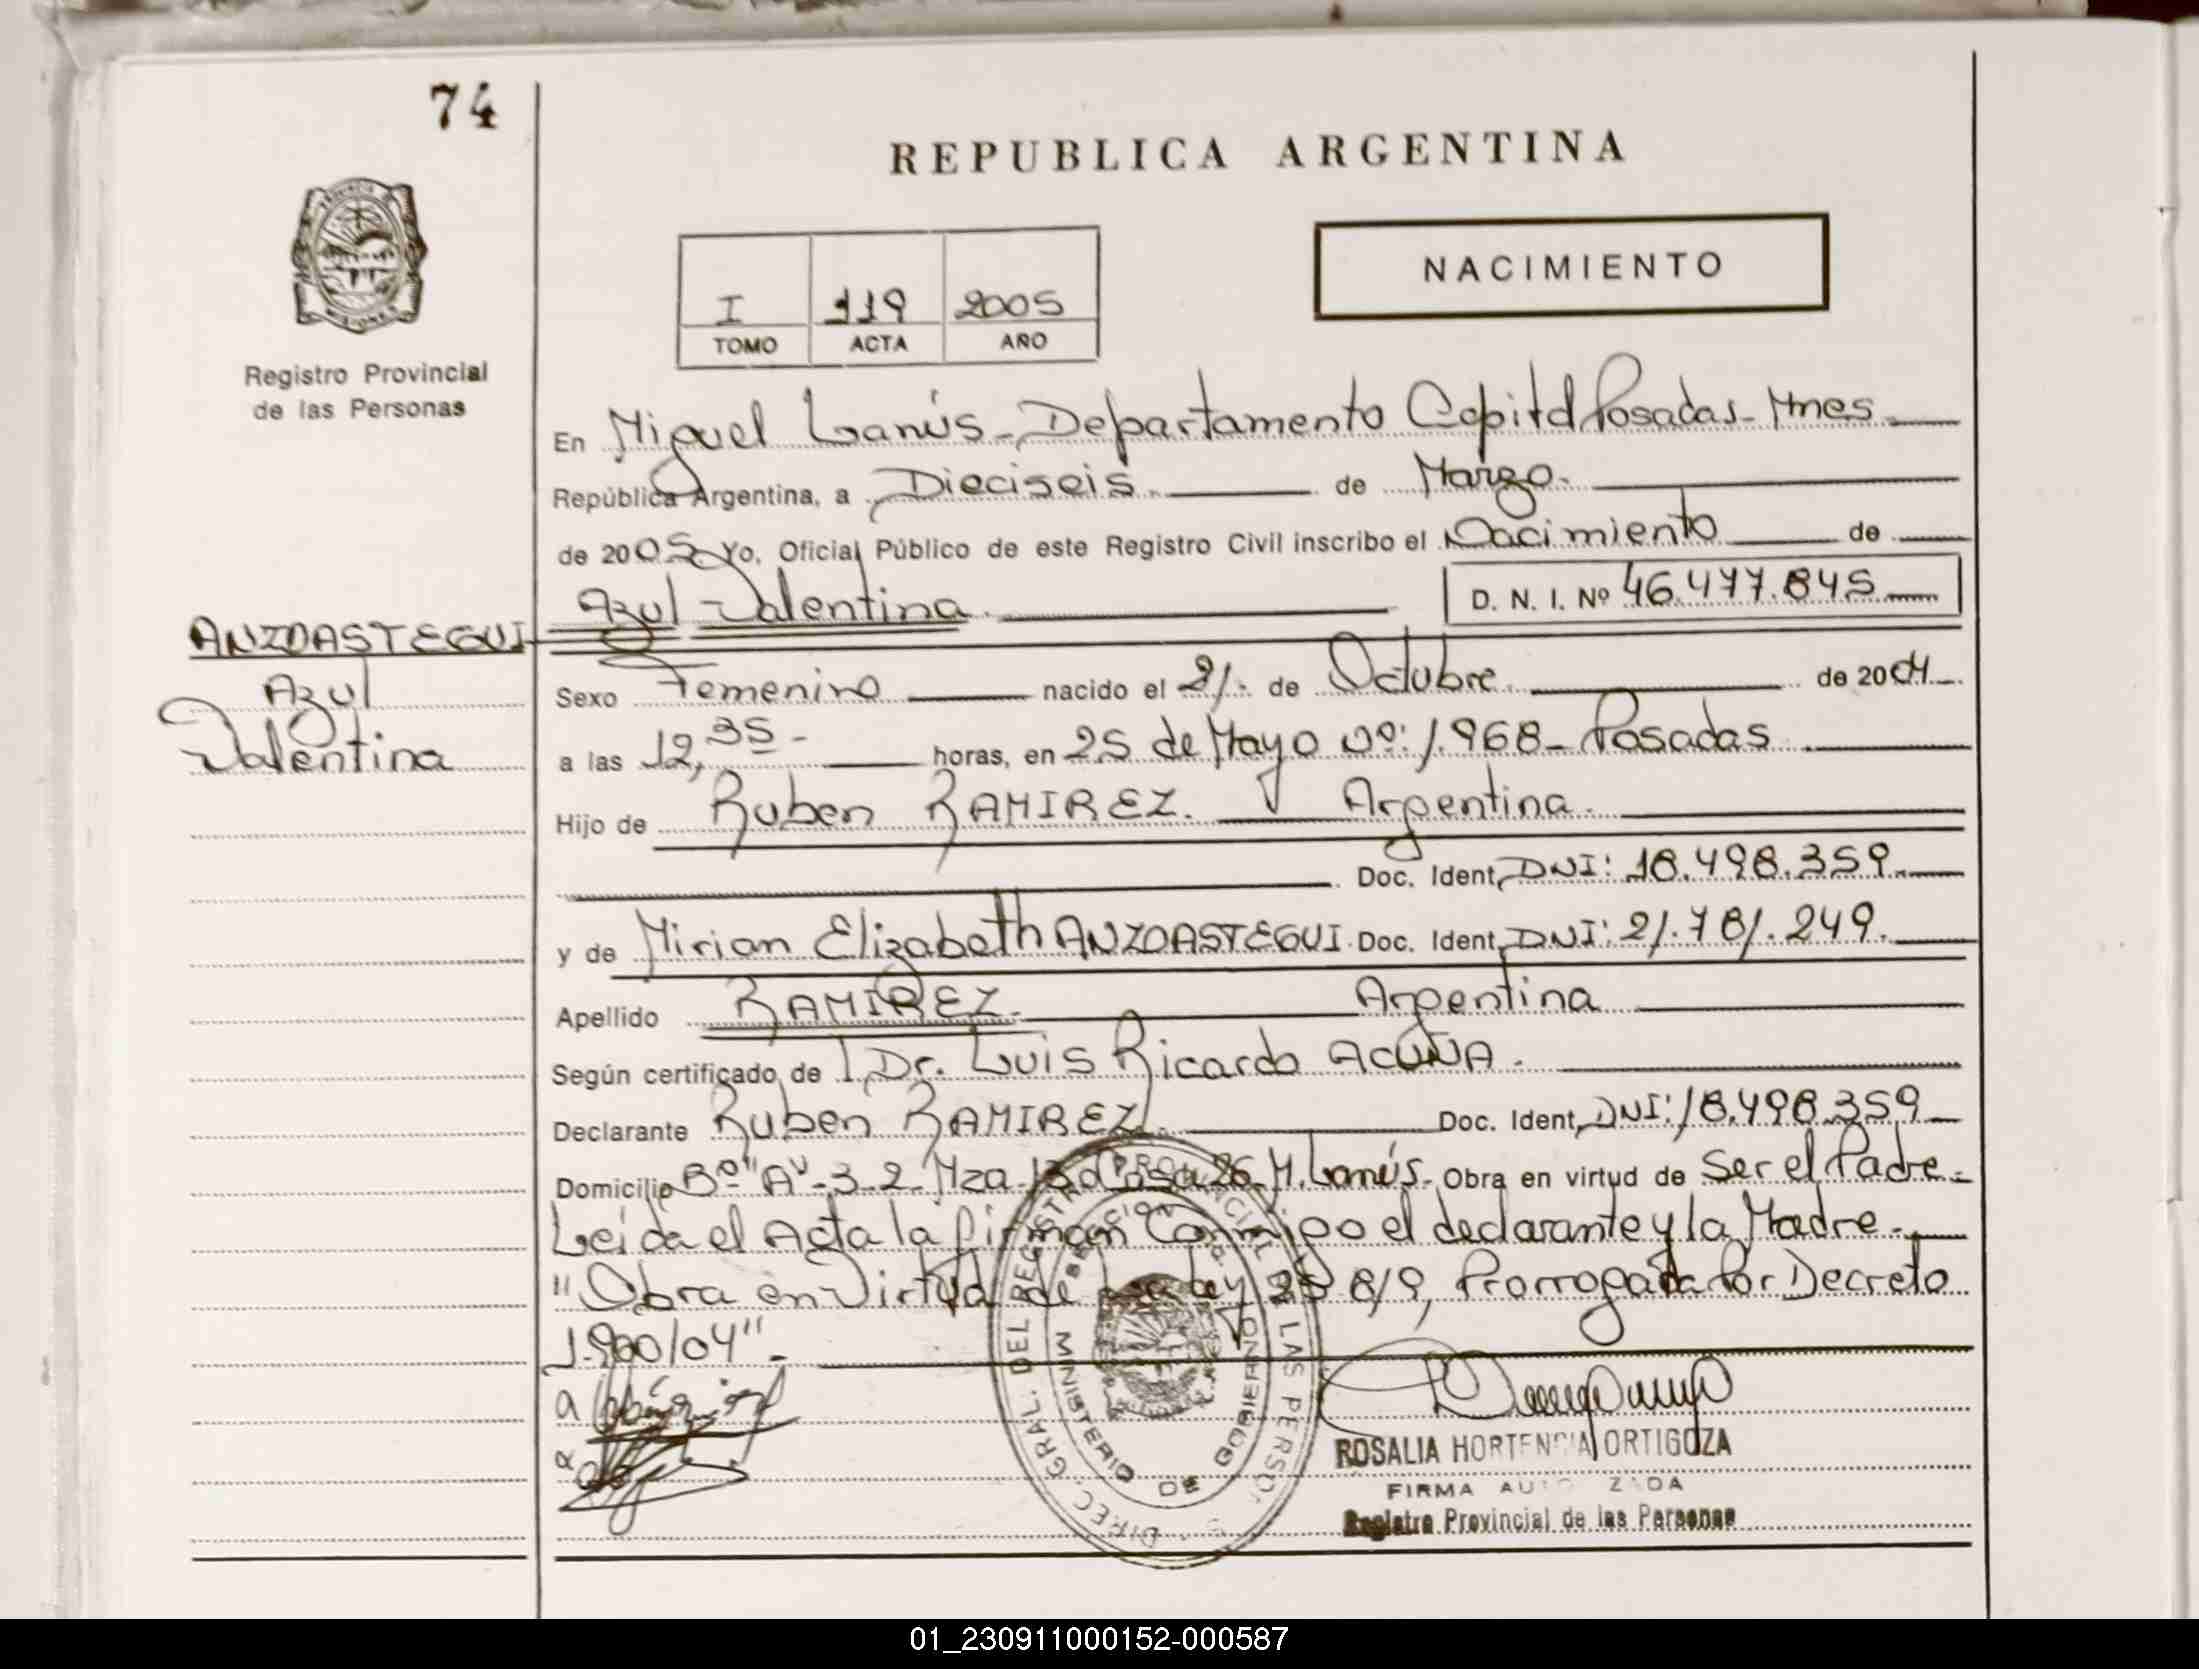 74
REPUBLICA ARGENTINA
NACIMIENTO
I 119 2005
TOMO ACTA AÑO
Registro Provincial
de las Personas
En Miguel Lanús - Departamento Capital Posadas - Mnes.
República Argentina, a Dieciseis. de Marzo.
de 2005. Yo, Oficial Público de este Registro Civil inscribo el Nacimiento de
Azul Valentina. D. N. I. Nº 46.477.845
ANZOASTEGUI
Azul
Valentina
Sexo Femenino nacido el 21. de Octubre. de 2004.
a las 12,35 - horas, en 25 de Mayo nº: 1.968 - Posadas.
Hijo de Ruben RAMIREZ. Argentina.
Doc. Ident, DNI: 18.498.359.
y de Mirian Elizabeth ANZOASTEGUI. Doc. Ident, DNI: 21.781.249.
Apellido RAMIREZ. Argentina
Según certificado de Dr. Luis Ricardo ACUÑA.
Declarante Ruben RAMIREZ. Doc. Ident, DNI: 18.498.359
Domicilio Bº "A" - 3-2 Mza. Casa 26 - M. Lanús. Obra en virtud de Ser el Padre.
Leida el Acta la firman Conmigo el declarante y la Madre.
"Obra en Virtud de Ley 25 819, Prorrogada Por Decreto
1.900/04" -
DIREC. GRAL. DEL REGISTRO PROVINCIAL DE LAS PERSO
MINISTERIO DE GOBIERNO
ROSALIA HORTENCIA ORTIGOZA
FIRMA AUTORIZADA
Registro Provincial de las Personas
01_230911000152-000587